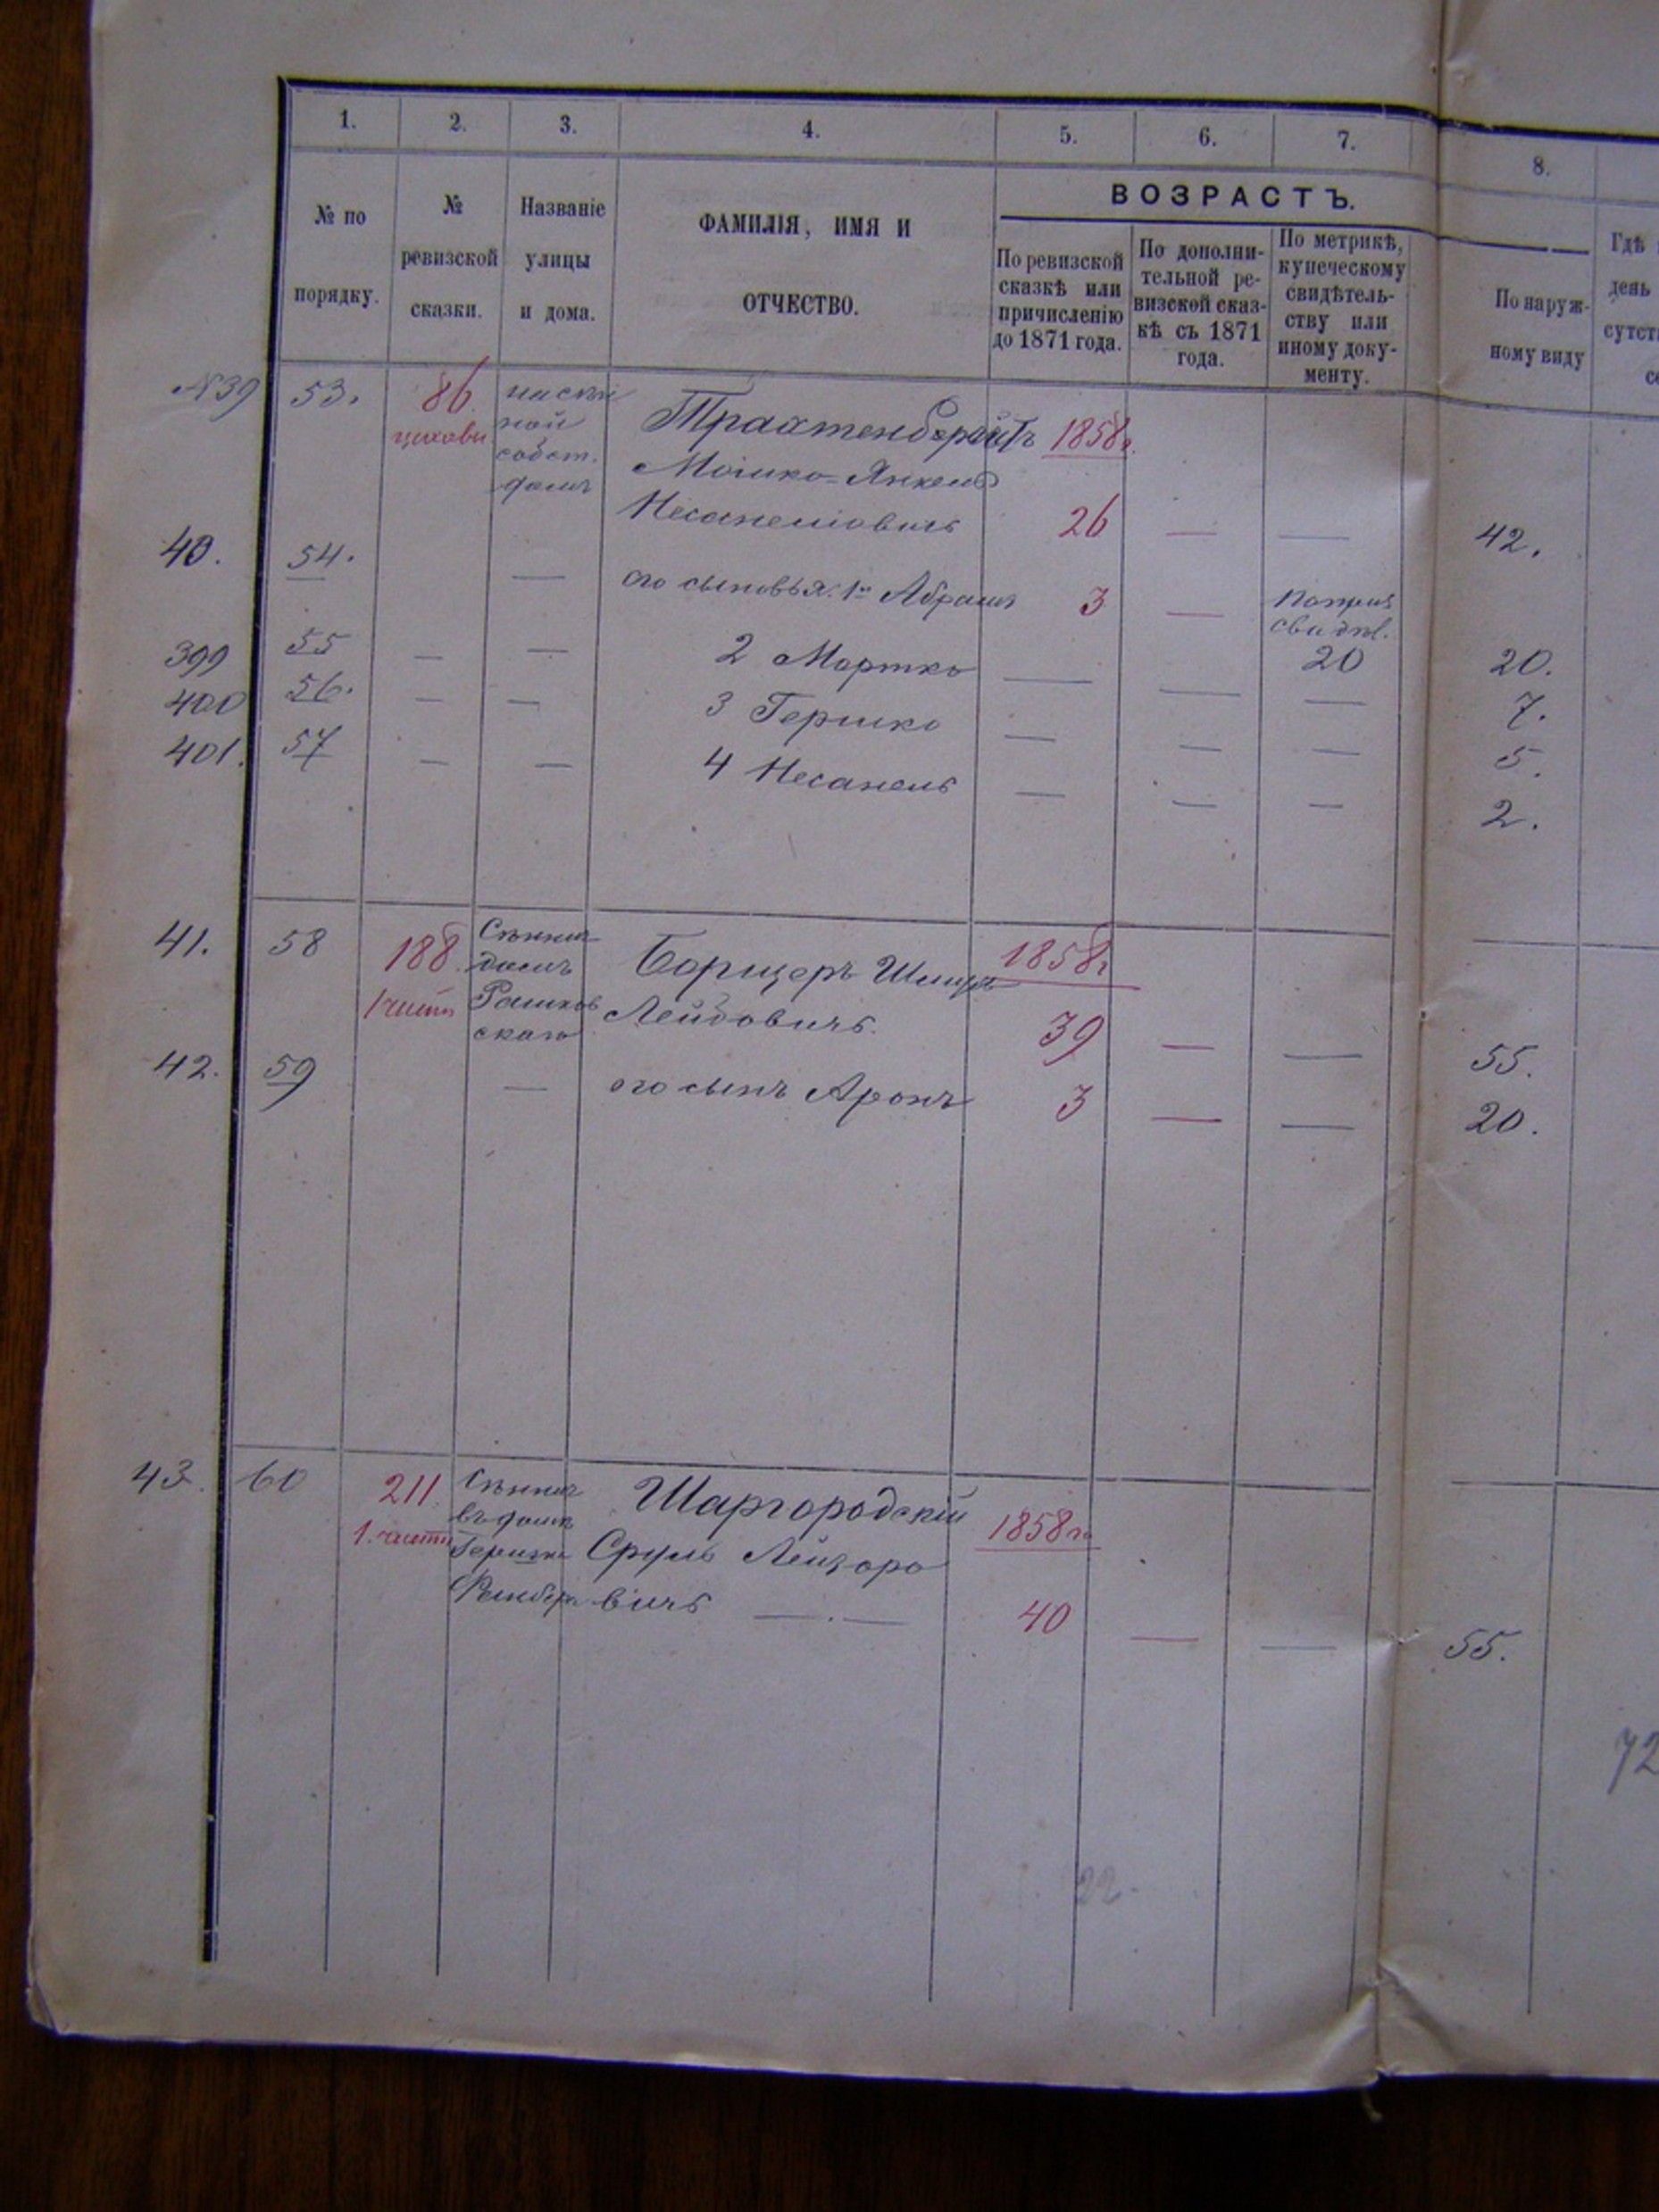 1. 2. 3. 4. 5. 6. 7. 8.
№ по порядку.
№ ревизской сказки.
Названіе улицы и дома.
ФАМИЛІЯ, ИМЯ И ОТЧЕСТВО.
ВОЗРАСТЪ.
По ревизской сказкѣ или причисленію до 1871 года.
По дополнительной ревизской сказкѣ съ 1871 года.
По метрикѣ, купеческому свидѣтельству или иному документу.
По наружному виду
Гдѣ
день
сутст
N39 53. 86 1858г.
собст.
домъ
Мошко-Янкель
Несанеліовичъ 26 — — 42.
40. 54. — его сыновья: 1й Абрамъ 3 — 20 20.
399 55 — — 2 Мортко — — — 7.
400 56. — — 3 Гершко — — — 5.
401. 57 — — 4 Несанель — — — 2.
41. 58 188. домъ Борщеръ 1858г
Рашков
скаго Лейбовичъ. 39 — — 55.
42. 59 — его сынъ Аронъ 3 — — 20.
43. 60 211. Шаргородскій 1858г.
1. части въ домѣ
Гершка Сруль Лейзоро
вичъ — . — 40 — — 55.
72
22.